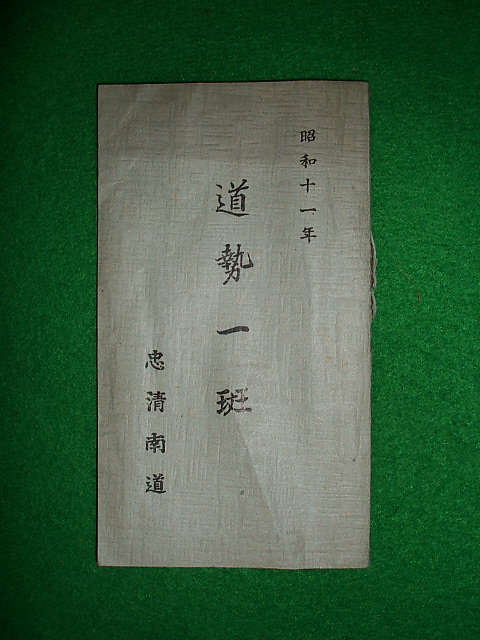 昭和十一年
道勢一班
忠清南道